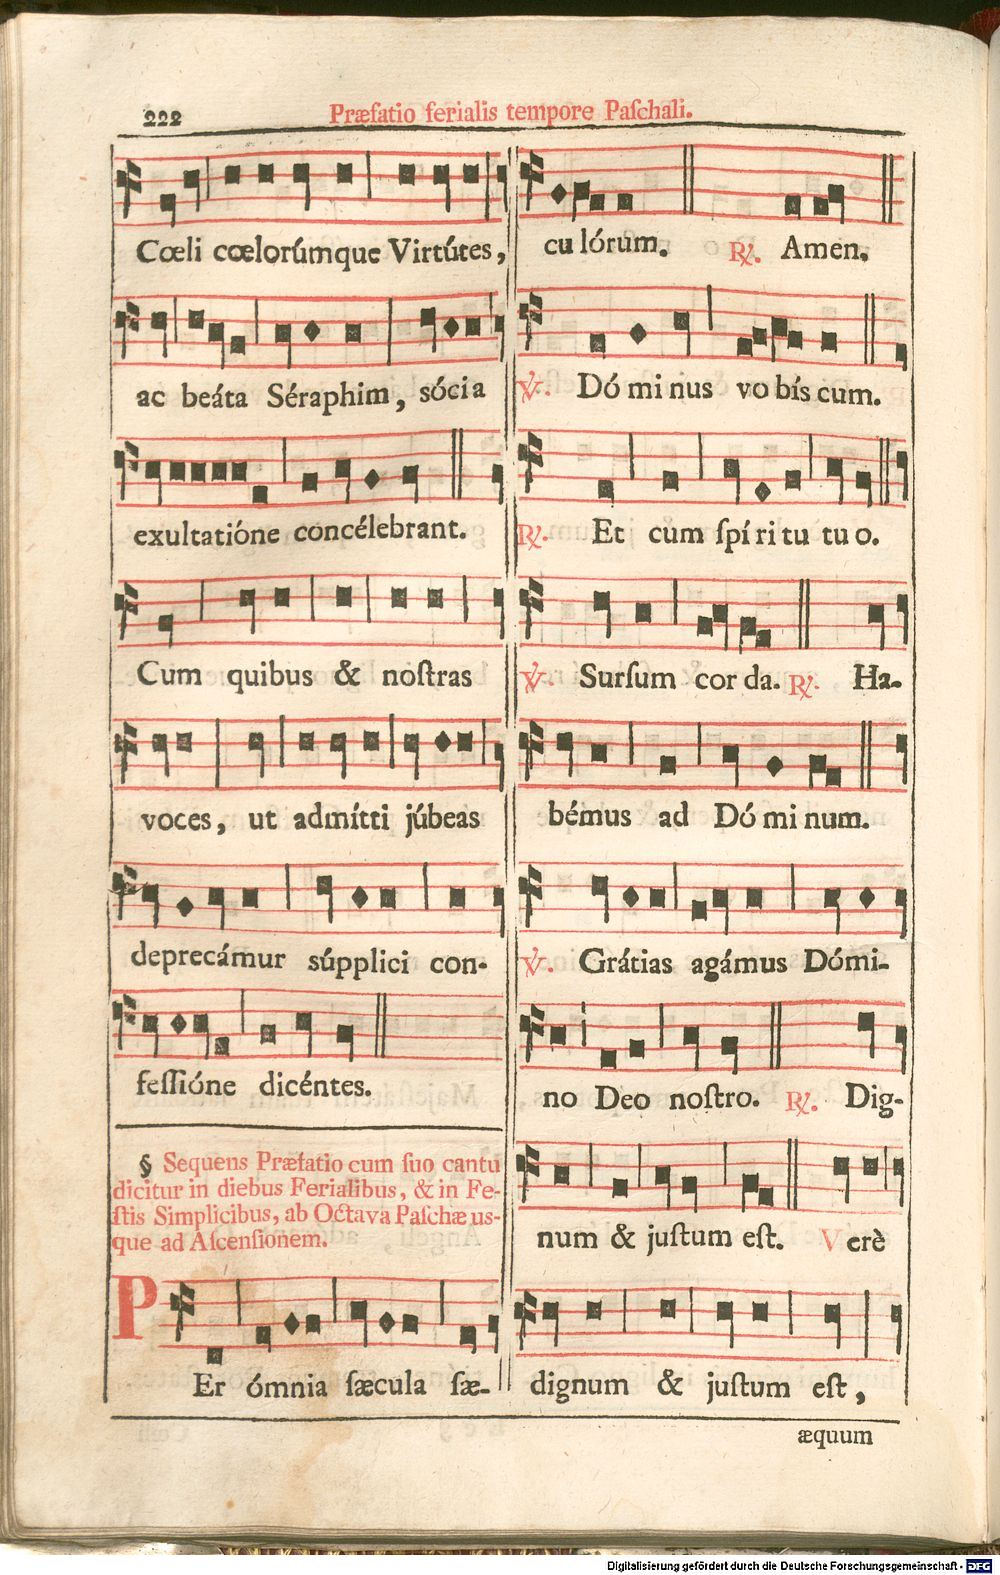 222
Præfatio ferialis tempore Paſchali.
Cœli cœlorúmque Virtútes,
ac beáta Séraphim, sócia
exultatióne concélebrant.
Cum quibus & noſtras
voces, ut admítti júbeas
deprecámur súpplici con-
feſſióne dicéntes.
§ Sequens Præfatio cum ſuo cantu
dicitur in diebus Ferialibus, & in Fe-
ſtis Simplicibus, ab Octava Paſchæ us-
que ad Aſcenſionem.
PEr ómnia ſæcula ſæ-
cu lórum. ℟. Amen.
℣. Dó mi nus vo bís cum.
℟. Et cum ſpí ri tu tu o.
℣. Surſum cor da. ℟. Ha-
bémus ad Dó mi num.
℣. Grátias agámus Dómi-
no Deo noſtro. ℟. Dig-
num & juſtum eſt. Verè
dignum & juſtum eſt,
æquum
Digitalisierung gefördert durch die Deutsche Forschungsgemeinschaft - DFG